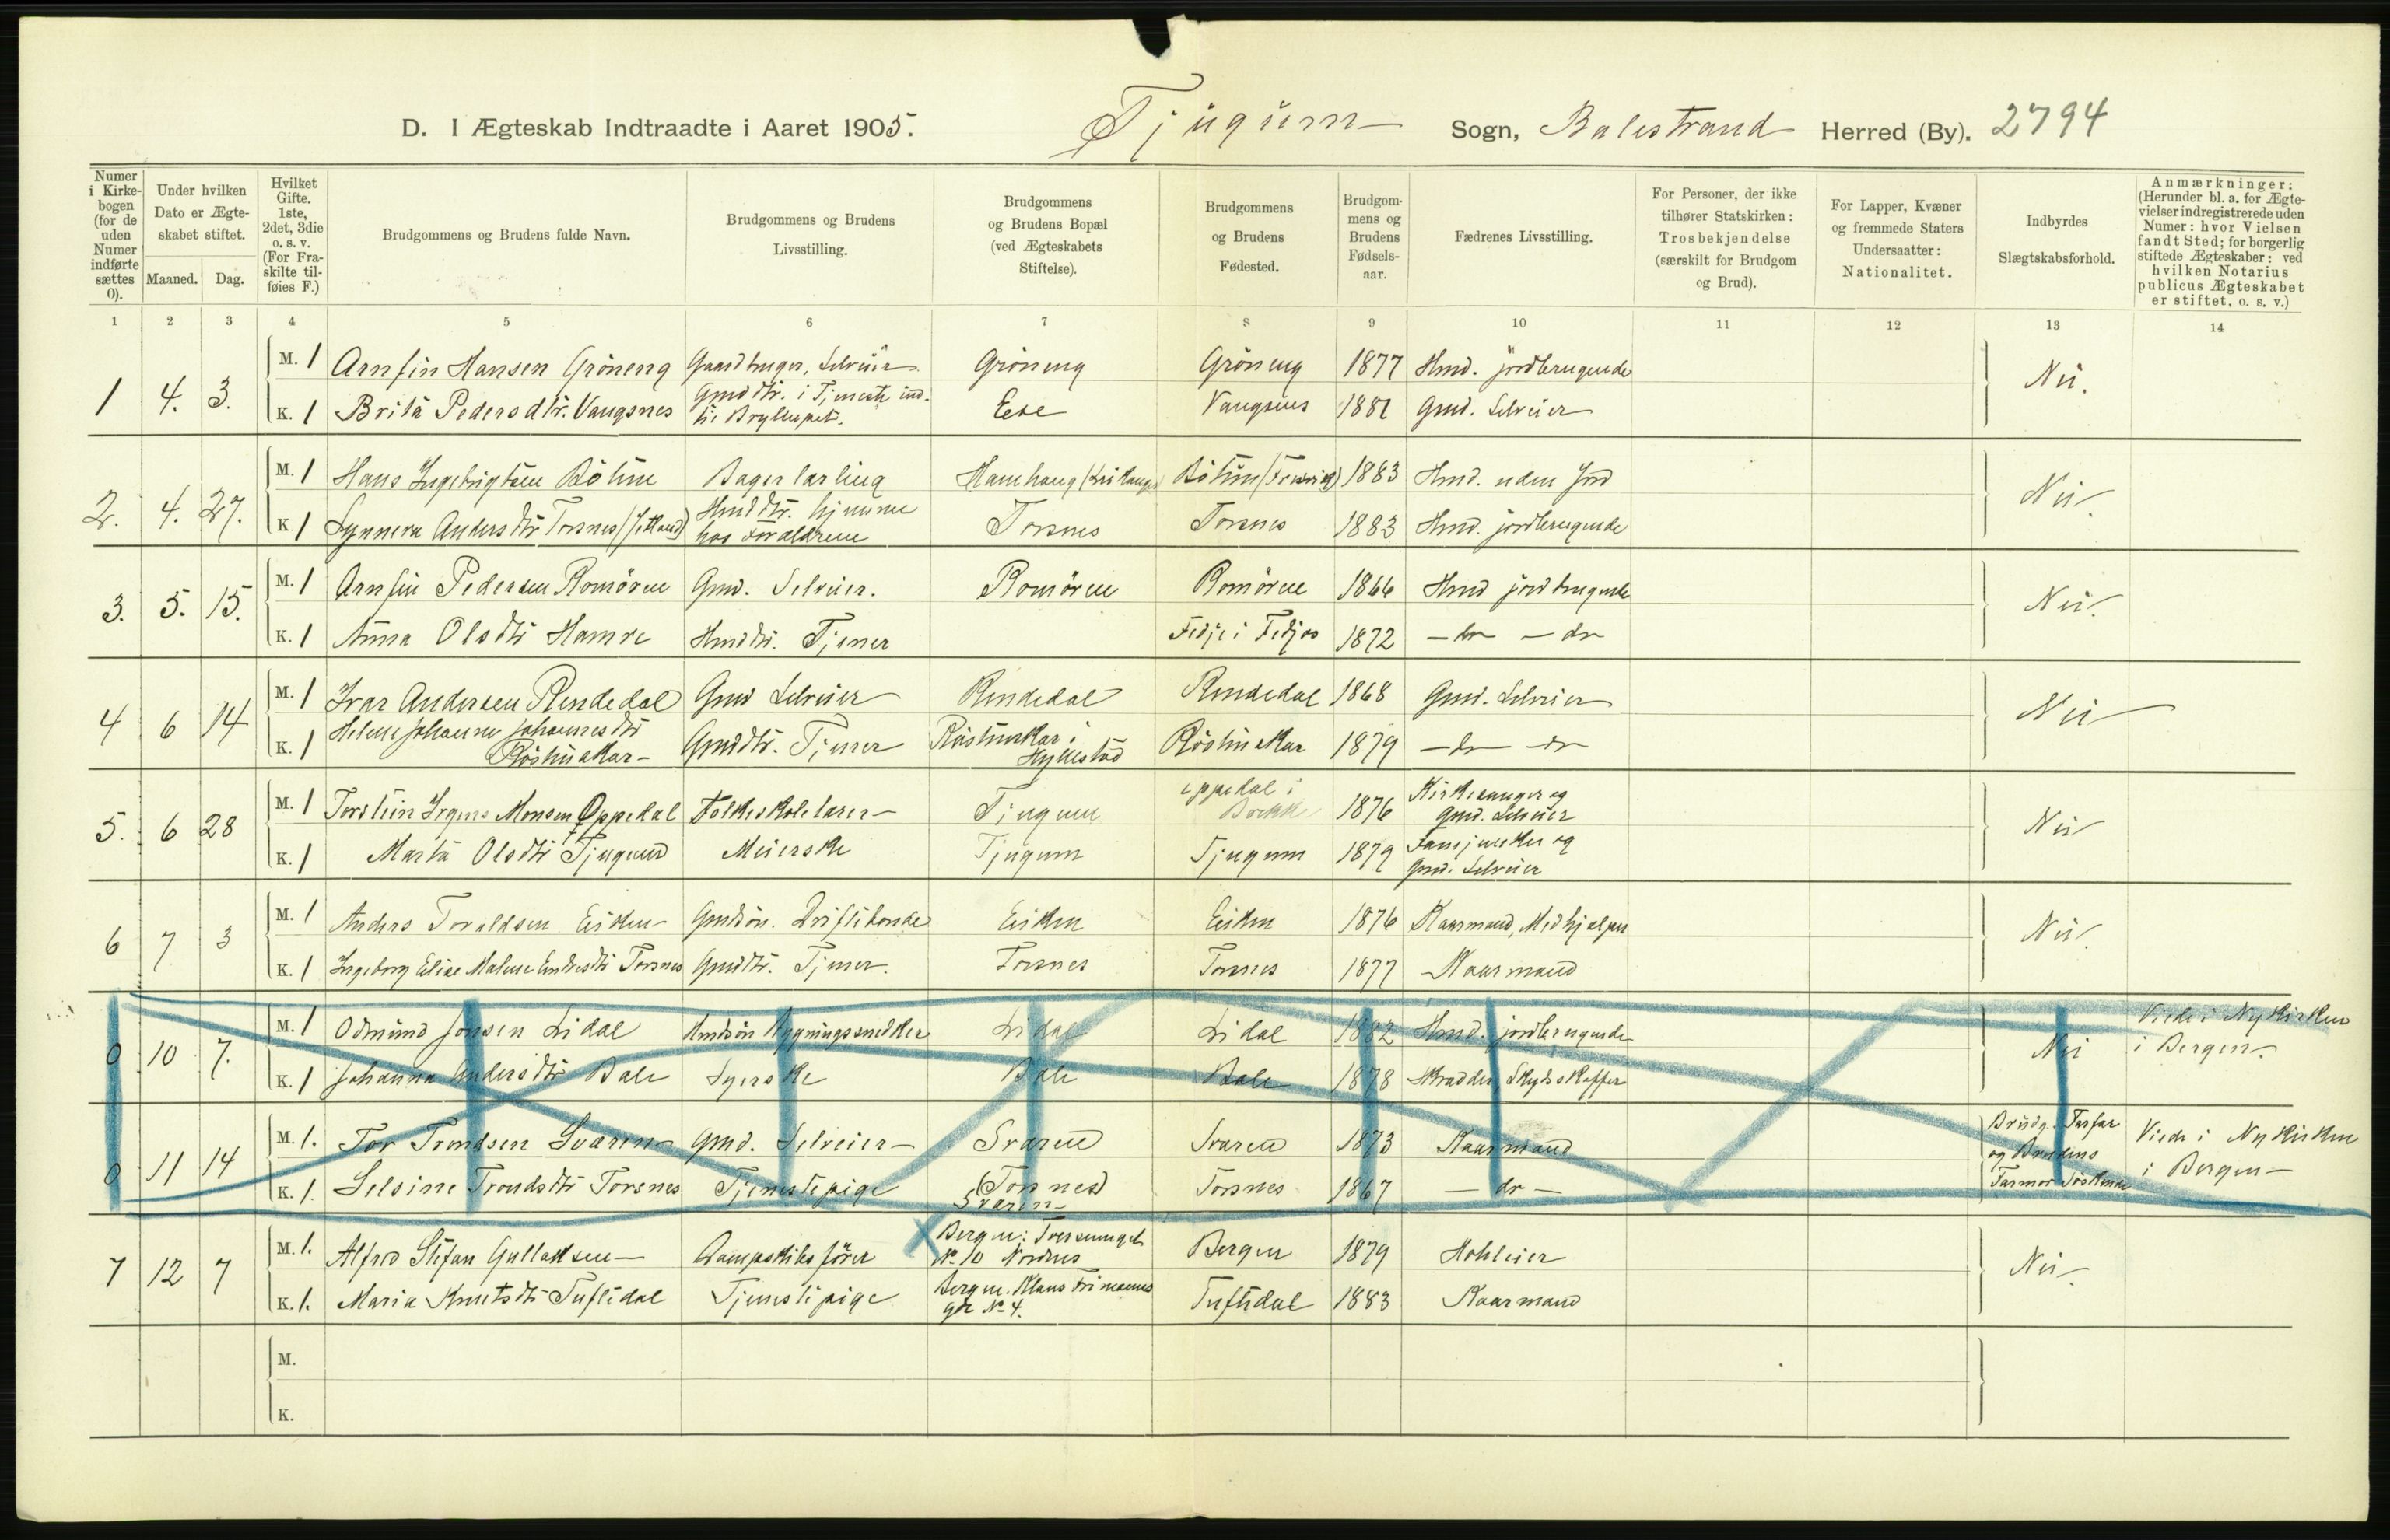 D. I Ægteskab Indtraadte i Aaret 1905. Tjugum Sogn, Balestrand Herred (By). 2794
Numer i Kirkebogen (for de uden Numer indførte sættes 0).
Under hvilken Dato er Ægteskabet stiftet.
Maaned. Dag.
Hvilket Gifte. 1ste, 2det, 3die o. s. v. (For Fraskilte tilføies F.)
Brudgommens og Brudens fulde Navn.
Brudgommens og Brudens Livsstilling.
Brudgommens og Brudens Bopæl (ved Ægteskabets Stiftelse).
Brudgommens og Brudens Fødested.
Brudgommens og Brudens Fødselsaar.
Fædrenes Livsstilling.
For Personer, der ikke tilhører Statskirken: Trosbekjendelse (særskilt for Brudgom og Brud).
For Lapper, Kvæner og fremmede Staters Undersaatter: Nationalitet.
Indbyrdes Slægtskabsforhold.
Anmærkninger: (Herunder bl. a. for Ægtevielser indregistrerede uden Numer: hvor Vielsen fandt Sted; for borgerlig stiftede Ægteskaber: ved hvilken Notarius publicus Ægteskabet er stiftet, o. s. v.)
1 2 3 4 5 6 7 8 9 10 11 12 13 14
1 4. 3. M. 1 Arnfin Hansen Gröneng Gaardbruger, Selveier Gröneng Gröneng 1877 Hmd. jordbrugende Nei.
K. 1 Brita Pedersdtr. Vangsnes Gmddtr. i Tjeneste ind- til Bryllupet. Ese Vangsnes 1881 Gmd. Selveier
2. 4. 27. M. 1 Hans Ingebrigtsen Böhm Bagerlærling Hamhaug Böhm 1883 Hmd. uden Jord Nei
K. 1 Synneva Andersdtr Torsnes Hmddtr. hjemme hos Forældrene Torsnes Torsnes 1883 Hmd. jordbrugende
3. 5. 15. M. 1 Arnfin Pedersen Romören Gmd. Selveier. Romören Romören 1866 Hmd jordbrugende Nei.
K. 1 Anna Olsdtr Hamre Hmddtr. Tjener Fedje i Fedjos 1872 — do — do
4 6 14 M. 1 Ivar Andersen Rendedal Gmd Selveier Rendedal Rendedal 1868 Gmd. Selveier Nei
K. 1 Helene Johanne Johannesdtr Röshuskar Gmddtr. Tjener Röshuskar i Hyllestad Röshuskar 1879 — do — do
5. 6 28 M. 1 Torstein Irgens Monsen Oppedal Folkeskolelærer Tjugum Oppedal i Brekke 1876 Kirkesanger og Gmd. Selveier Nei
K. 1 Marta Olsdtr Tjugum Meierske Tjugum Tjugum 1879 og Gmd. Selveier
6 7 3 M. 1 Anders Toraldsen Esken Gmdsön. Driftsbonde Esken Esken 1876 Kaarmand, Medhjælper Nei.
K. 1 Ingeborg Elise Malene Endresdtr Torsnes Gmddtr. Tjener. Torsnes Torsnes 1877 Kaarmand
0 10 7. M. 1 Odmund Jonsen Lidal Hmdsön Bygningssnedker Lidal Lidal 1882 Hmd. jordbrugende Nei Viede i Nykirken i Bergen.
K. 1 Johanna Andersdtr Bale Syerske Bale Bale 1878 Skrædder, Skydsskaffer
0 11 14 M. 1. Tor Trondsen Sværen Gmd. Selveier Sværen Sværen 1873 Kaarmand Brudg. Farfar og Brudens Farmor Söskende Viede i Nykirken i Bergen
K. 1. Selsine Trondsdtr Torsnes Tjenestepige (Torsnes) Sværen Torsnes 1867 — do —
7 12 7 M. 1. Alfred Stefan Gullaksen Dampskibsförer Bergen: No 10 Nordnes Bergen 1879 Nei.
K. 1. Maria Knutsdtr Tuftedal Tjenestepige Bergen. Klaus Frimanns gde No 4. Tuftedal 1883 Kaarmand
M.
K.